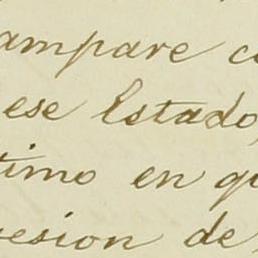 ampare c
ese Estado,
timo en qu
esion de